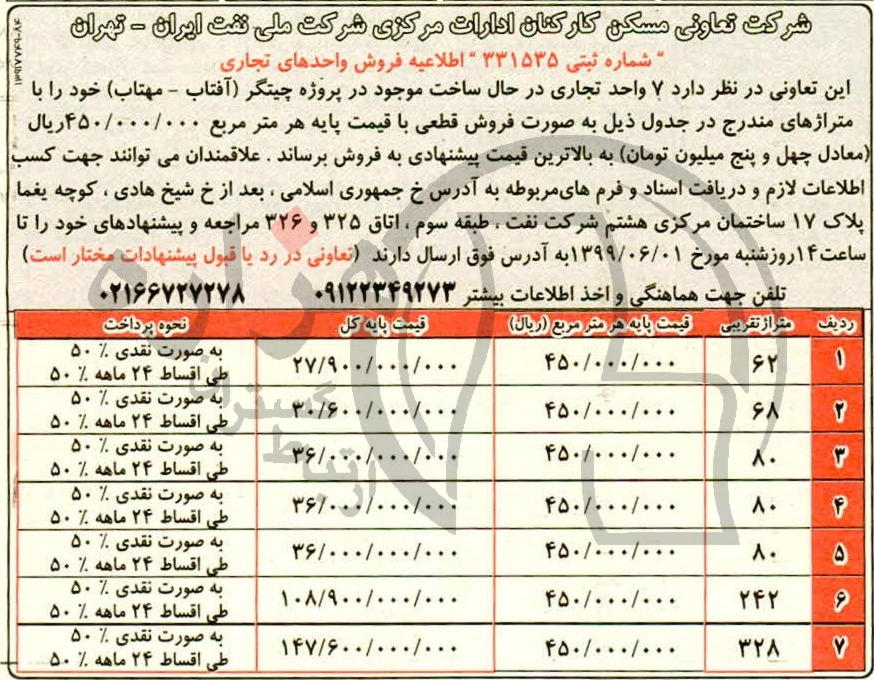 شرکت تعاونی مسکن کارکنان ادارات مرکزی شرکت ملی نفت ایران - تهران
" شماره ثبتی ۳۳۱۵۳۵ " اطلاعیه فروش واحدهای تجاری
این تعاونی در نظر دارد ۷ واحد تجاری در حال ساخت موجود در پروژه چیتگر (آفتاب - مهتاب) خود را با
متراژهای مندرج در جدول ذیل به صورت فروش قطعی با قیمت پایه هر متر مربع ۴۵۰/۰۰۰/۰۰۰ریال
(معادل چهل و پنج میلیون تومان) به بالاترین قیمت پیشنهادی به فروش برساند . علاقمندان می توانند جهت کسب
اطلاعات لازم و دریافت اسناد و فرم های‌مربوطه به آدرس خ جمهوری اسلامی ، بعد از خ شیخ هادی ، کوچه یغما
پلاک ۱۷ ساختمان مرکزی هشتم شرکت نفت ، طبقه سوم ، اتاق ۳۲۵ و ۳۲۶ مراجعه و پیشنهادهای خود را تا
ساعت۱۴روزشنبه مورخ ۱۳۹۹/۰۶/۰۱به آدرس فوق ارسال دارند (تعاونی در رد یا قبول پیشنهادات مختار است)
تلفن جهت هماهنگی و اخذ اطلاعات بیشتر ۰۹۱۲۲۳۴۹۲۷۳ ۰۲۱۶۶۷۲۷۲۷۸
ردیف متراژتقریبی قیمت پایه هر متر مربع (ریال) قیمت پایه کل نحوه پرداخت
۱ ۶۲ ۴۵۰/۰۰۰/۰۰۰ ۲۷/۹۰۰/۰۰۰/۰۰۰ به صورت نقدی ٪ ۵۰
طی اقساط ۲۴ ماهه ٪ ۵۰
۲ ۶۸ ۴۵۰/۰۰۰/۰۰۰ ۳۰/۶۰۰/۰۰۰/۰۰۰ به صورت نقدی ٪ ۵۰
طی اقساط ۲۴ ماهه ٪ ۵۰
۳ ۸۰ ۴۵۰/۰۰۰/۰۰۰ ۳۶/۰۰۰/۰۰۰/۰۰۰ به صورت نقدی ٪ ۵۰
طی اقساط ۲۴ ماهه ٪ ۵۰
۴ ۸۰ ۴۵۰/۰۰۰/۰۰۰ ۳۶/۰۰۰/۰۰۰/۰۰۰ به صورت نقدی ٪ ۵۰
طی اقساط ۲۴ ماهه ٪ ۵۰
۵ ۸۰ ۴۵۰/۰۰۰/۰۰۰ ۳۶/۰۰۰/۰۰۰/۰۰۰ به صورت نقدی ٪ ۵۰
طی اقساط ۲۴ ماهه ٪ ۵۰
۶ ۲۴۲ ۴۵۰/۰۰۰/۰۰۰ ۱۰۸/۹۰۰/۰۰۰/۰۰۰ به صورت نقدی ٪ ۵۰
طی اقساط ۲۴ ماهه ٪ ۵۰
۷ ۳۲۸ ۴۵۰/۰۰۰/۰۰۰ ۱۴۷/۶۰۰/۰۰۰/۰۰۰ به صورت نقدی ٪ ۵۰
طی اقساط ۲۴ ماهه ٪ ۵۰